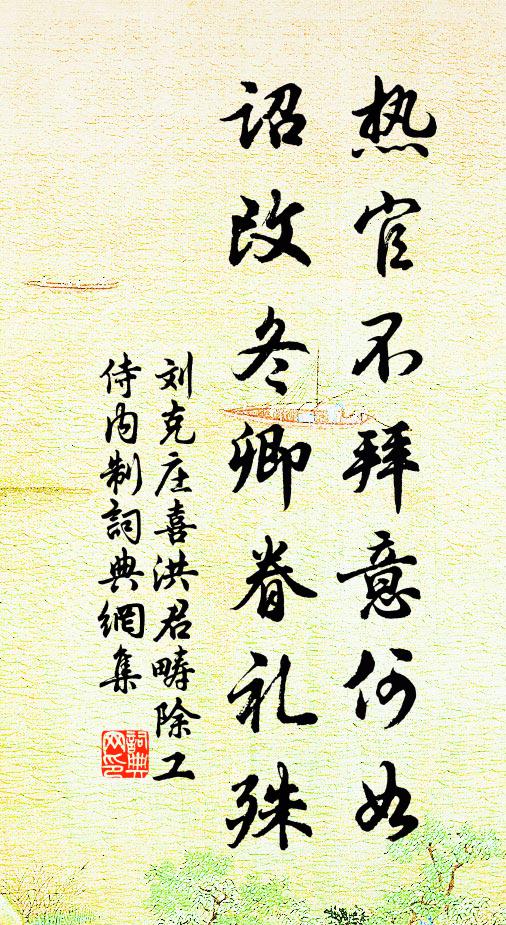 热官不拜意何如
诏改冬卿眷礼殊
刘克庄喜洪君畴除工
侍内制詞典網集
詞典网印